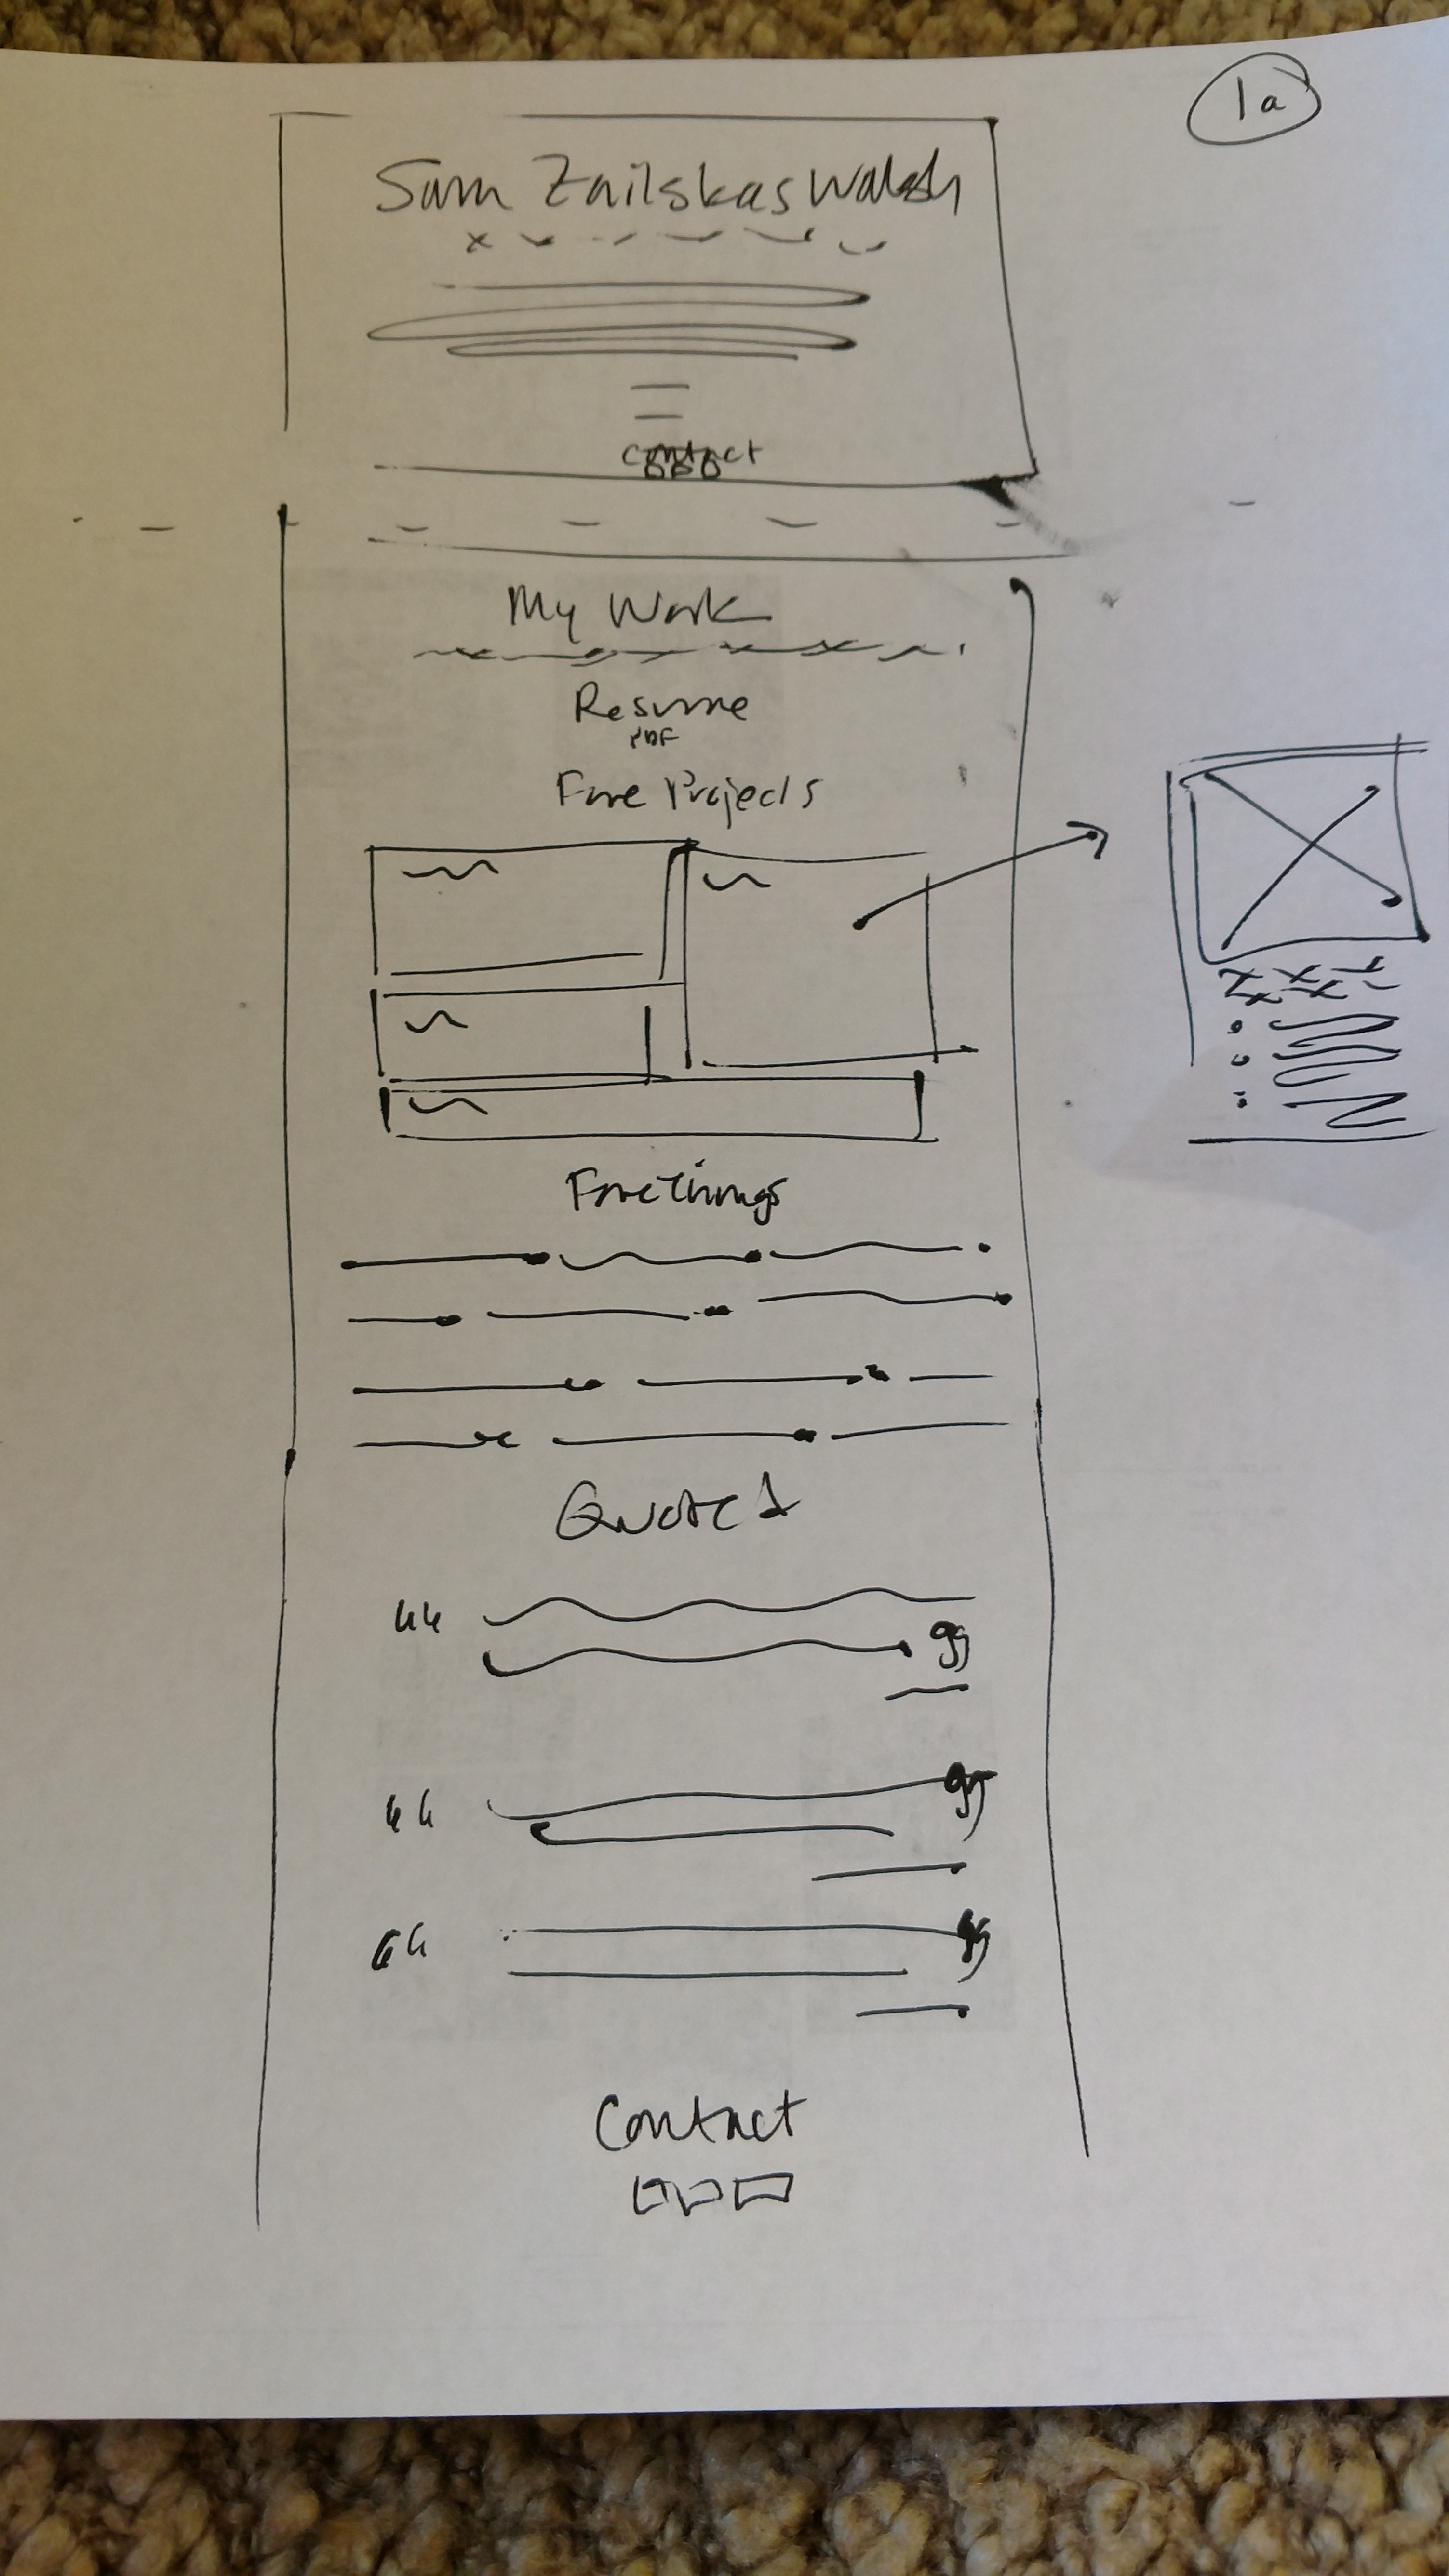 1a
Sam Zailskas Walsh
Contact
My Work
Resume
PDF
Fave Projects
Fave Things
Quotes
Contact